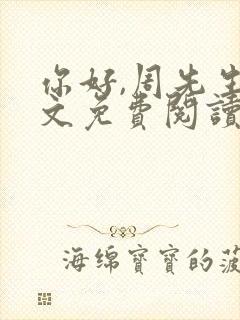 你好,周先生
文免費閱讀
海绵寶寶的菠